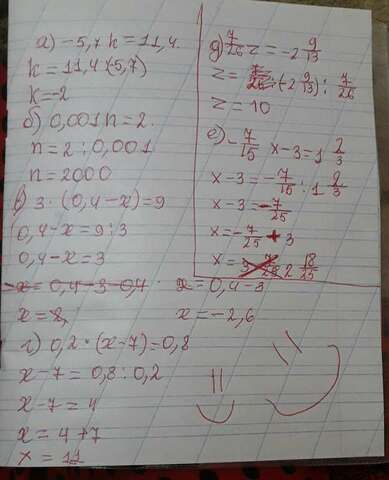 а) -5,7 k = 11,4.
k = 11,4 : (5,7)
k = -2
б) 0,001 n = 2.
n = 2 : 0,001
n = 2000
в) 3 · (0,4 - x) = 9
0,4 - x = 9 : 3
0,4 - x = 3
x = 0,4 - 3 0,4
x = 0,4 - 3
x = 2,
x = -2,6
г) 0,2 · (x - 7) = 0,8
x - 7 = 0,8 : 0,2
x - 7 = 4
x = 4 + 7
x = 11
д) 7/26 z = -2 9/13
z = (-2 9/13) : 7/26
z = 10
е) -7/15 x - 3 = 1 2/3
x - 3 = -7/15 : 1 2/3
x - 3 = -7/25
x = -7/25 + 3
x = 2 18/25